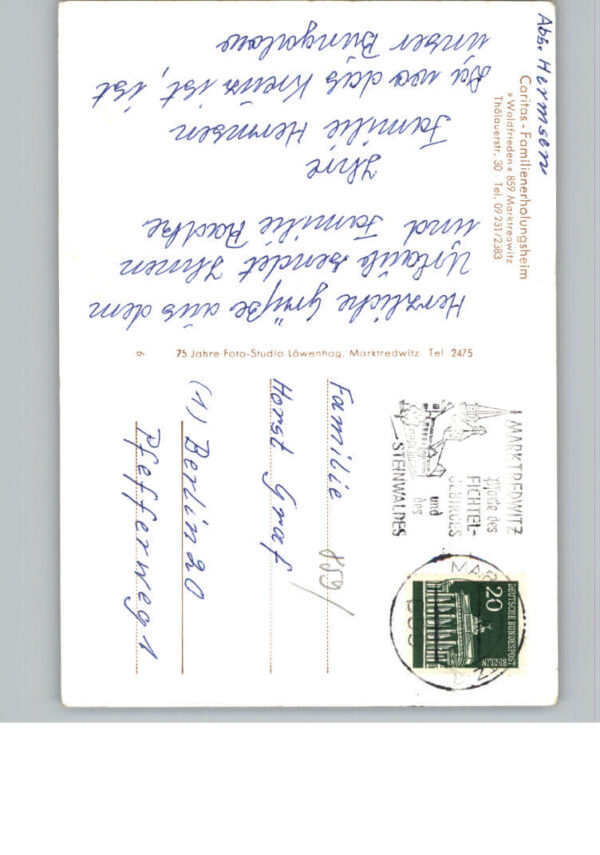 Abs. Hermsen
Caritas - Familienerholungsheim
»Waldfrieden« 859 Marktredwitz
Thölauerstr. 30 Tel. 09231/2383
Herzliche Grüße aus dem
Urlaub sendet Ihnen
und Familie Radtke
Ihre
Familie Hermsen
Da wo das Kreuz ist, ist
unser Bungalow
9
75 Jahre Foto-Studio Löwenhag, Marktredwitz Tel. 2475
MARKTREDWITZ
Pforte des
FICHTEL-
GEBIRGES
und
des
STEINWALDES
DEUTSCHE BUNDESPOST
BERLIN
20
859/
Familie
Horst Graf
(1) Berlin 20
Pfefferweg 1